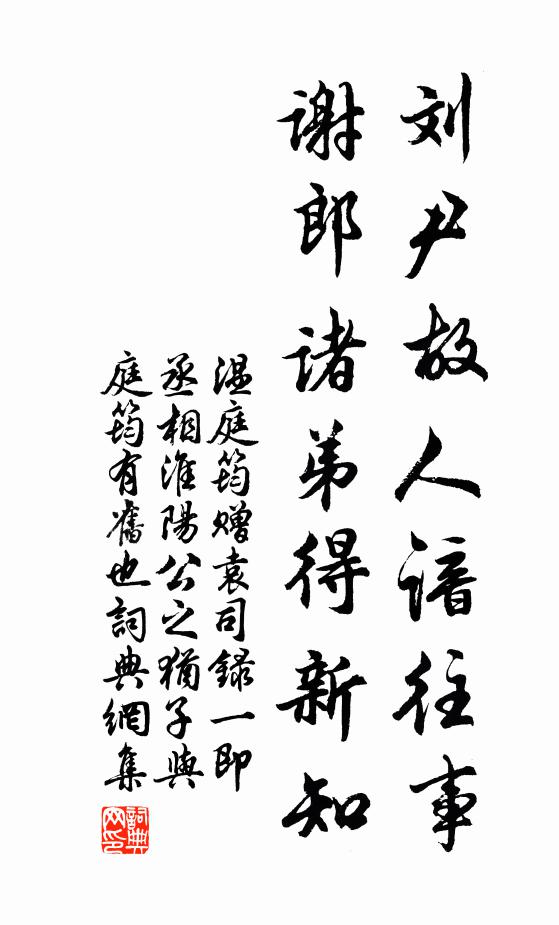 刘尹故人谙往事
谢郎诸弟得新知
温庭筠赠袁司録一即
丞相淮陽公之猶子與
庭筠有舊也詞典網集
詞典
网印